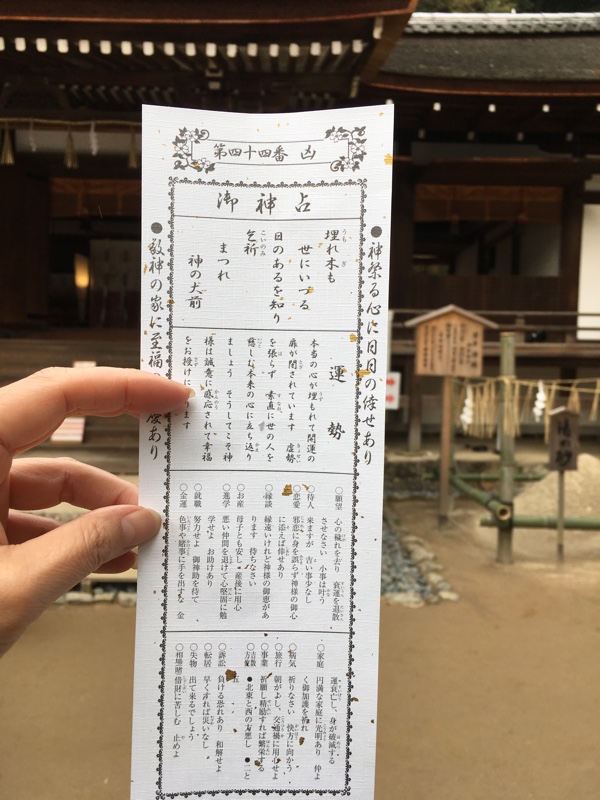 第四十四番 凶
御神占
●神祭る心に日日の倖せあり
埋れ木も
世にいづる
日のあるを知り
乞祈
まつれ
神の大前
運勢
本当の心が埋もれて開運の
扉が閉されています 虚勢
を張らず 素直に世の人を
慈しむ本来の心に立ち返り
ましょう そうしてこそ神
様は誠意に感応されて幸福
をお授けに
ます
○願望 心の穢れを去り 衰運を退散
させなさい 小事は叶う
○待人 来ますが 吉い事少なし
○恋愛 邪恋に身を誤らず神様の御心
に添えば倖せあり
○縁談 縁遠いけれど神様の御恵があ
ります 待ちなさい
○お産 母子とも安し 産後に用心
○進学 悪い仲間を退けて心堅固に勉
学せよ お助けあり
○就職 努力せよ 御神助を待て
○金運 色事や賭事に手を出すな 金
運衰亡し、身が破滅する
○家庭 円満な家庭に光明あり 仲よ
く御加護を祈れ
○病気 祈りなさい 快方に向かう
○旅行 朝がよし、交通禍に用心せよ
○事業 祈願し精励すれば繁栄する
○吉数方位 ●北東と西の方悪し ●二と
五
○訴訟 負ける恐れあり 和解せよ
○転居 早くすれば災いなし
○失物 出て来るでしょう
○相場賭 借財に苦しむ 止めよ
●敬神の家に至福
度あり